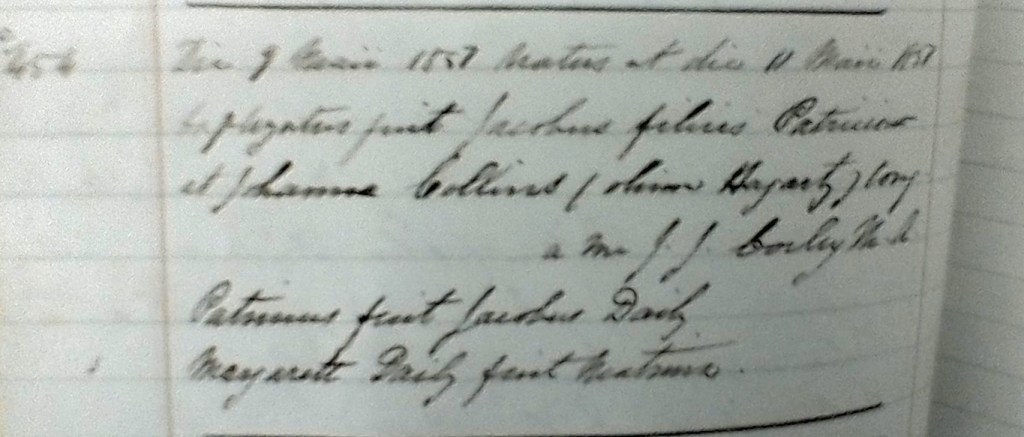 Die 9 Maii 1857 natus et die 11 Maii 1857
baptizatus fuit Jacobus filius Patricii
et Johanna Collins (olim Hagarty) conj
a me J. J.
Patrinus fuit Jacobus Daily
Margarett Daily fuit Matrina.